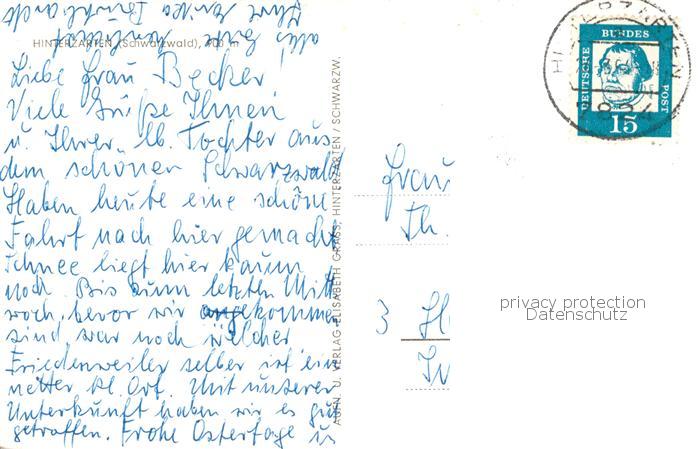 HINTERZARTEN (Schwarzwald), 900 m
Liebe Frau Becker
Viele Grüße Ihnen
u. Ihrer lb. Tochter aus
dem schönen Schwarzwald
Haben heute eine schöne
Fahrt nach hier gemacht
Schnee liegt hier kaum
noch. Bis zum letzten Mitt
woch, bevor wir angekommen
sind, war noch welcher
Friedenweiler selber ist ein
netter kl. Ort. Mit unserer
Unterkunft haben wir es gut
getroffen. Frohe Ostertage u
alles Gute
Ihre
AUFN. U. VERLAG ELISABETH GRASS, HINTERZARTEN / SCHWARZW.
HINTERZARTEN
824
DEUTSCHE BUNDES POST
15
Frau
Th.
3 H
privacy protection
Datenschutz